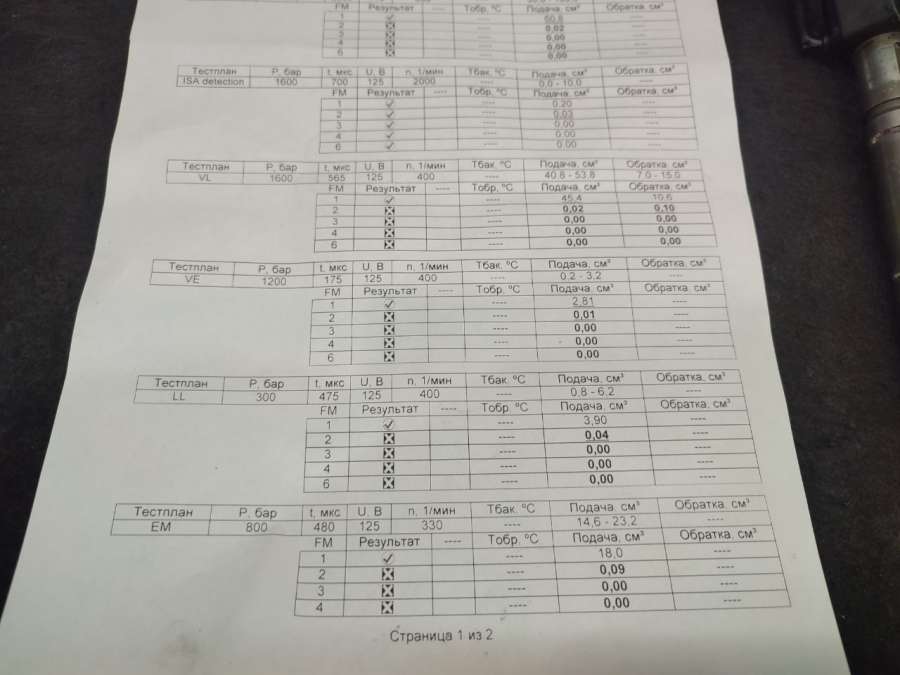 FM Результат ---- Тобр, ºС Подача, см³ Обратка, см³
1 ---- 60,8 ----
2 ---- 0,02 ----
3 ---- 0,00 ----
4 ---- 0,00 ----
6 ---- 0,00 ----
Тестплан P, бар t, мкс U, В n, 1/мин Тбак. ºС Подача, см³ Обратка, см³
ISA detection 1600 700 125 2000 ---- 0,0 - 10,0 ----
FM Результат ---- Тобр, ºС Подача, см³ Обратка, см³
1 ---- 0,20 ----
2 ---- 0,03 ----
3 ---- 0,00 ----
4 ---- 0,00 ----
6 ---- 0,00 ----
Тестплан P, бар t, мкс U, В n, 1/мин Тбак. ºС Подача, см³ Обратка, см³
VL 1600 565 125 400 ---- 40,8 - 53,8 7,0 - 15,0
FM Результат ---- Тобр, ºС Подача, см³ Обратка, см³
1 ---- 45,4 10,6
2 ---- 0,02 0,10
3 ---- 0,00 0,00
4 ---- 0,00 0,00
6 ---- 0,00 0,00
Тестплан P, бар t, мкс U, В n, 1/мин Тбак. ºС Подача, см³ Обратка, см³
VE 1200 175 125 400 ---- 0,2 - 3,2 ----
FM Результат ---- Тобр, ºС Подача, см³ Обратка, см³
1 ---- 2,81 ----
2 ---- 0,01 ----
3 ---- 0,00 ----
4 ---- 0,00 ----
6 ---- 0,00 ----
Тестплан P, бар t, мкс U, В n, 1/мин Тбак. ºС Подача, см³ Обратка, см³
LL 300 475 125 400 ---- 0,8 - 6,2 ----
FM Результат ---- Тобр, ºС Подача, см³ Обратка, см³
1 ---- 3,90 ----
2 ---- 0,04 ----
3 ---- 0,00 ----
4 ---- 0,00 ----
6 ---- 0,00 ----
Тестплан P, бар t, мкс U, В n, 1/мин Тбак. ºС Подача, см³ Обратка, см³
EM 800 480 125 330 ---- 14,6 - 23,2 ----
FM Результат ---- Тобр, ºС Подача, см³ Обратка, см³
1 ---- 18,0 ----
2 ---- 0,09 ----
3 ---- 0,00 ----
4 ---- 0,00 ----
Страница 1 из 2